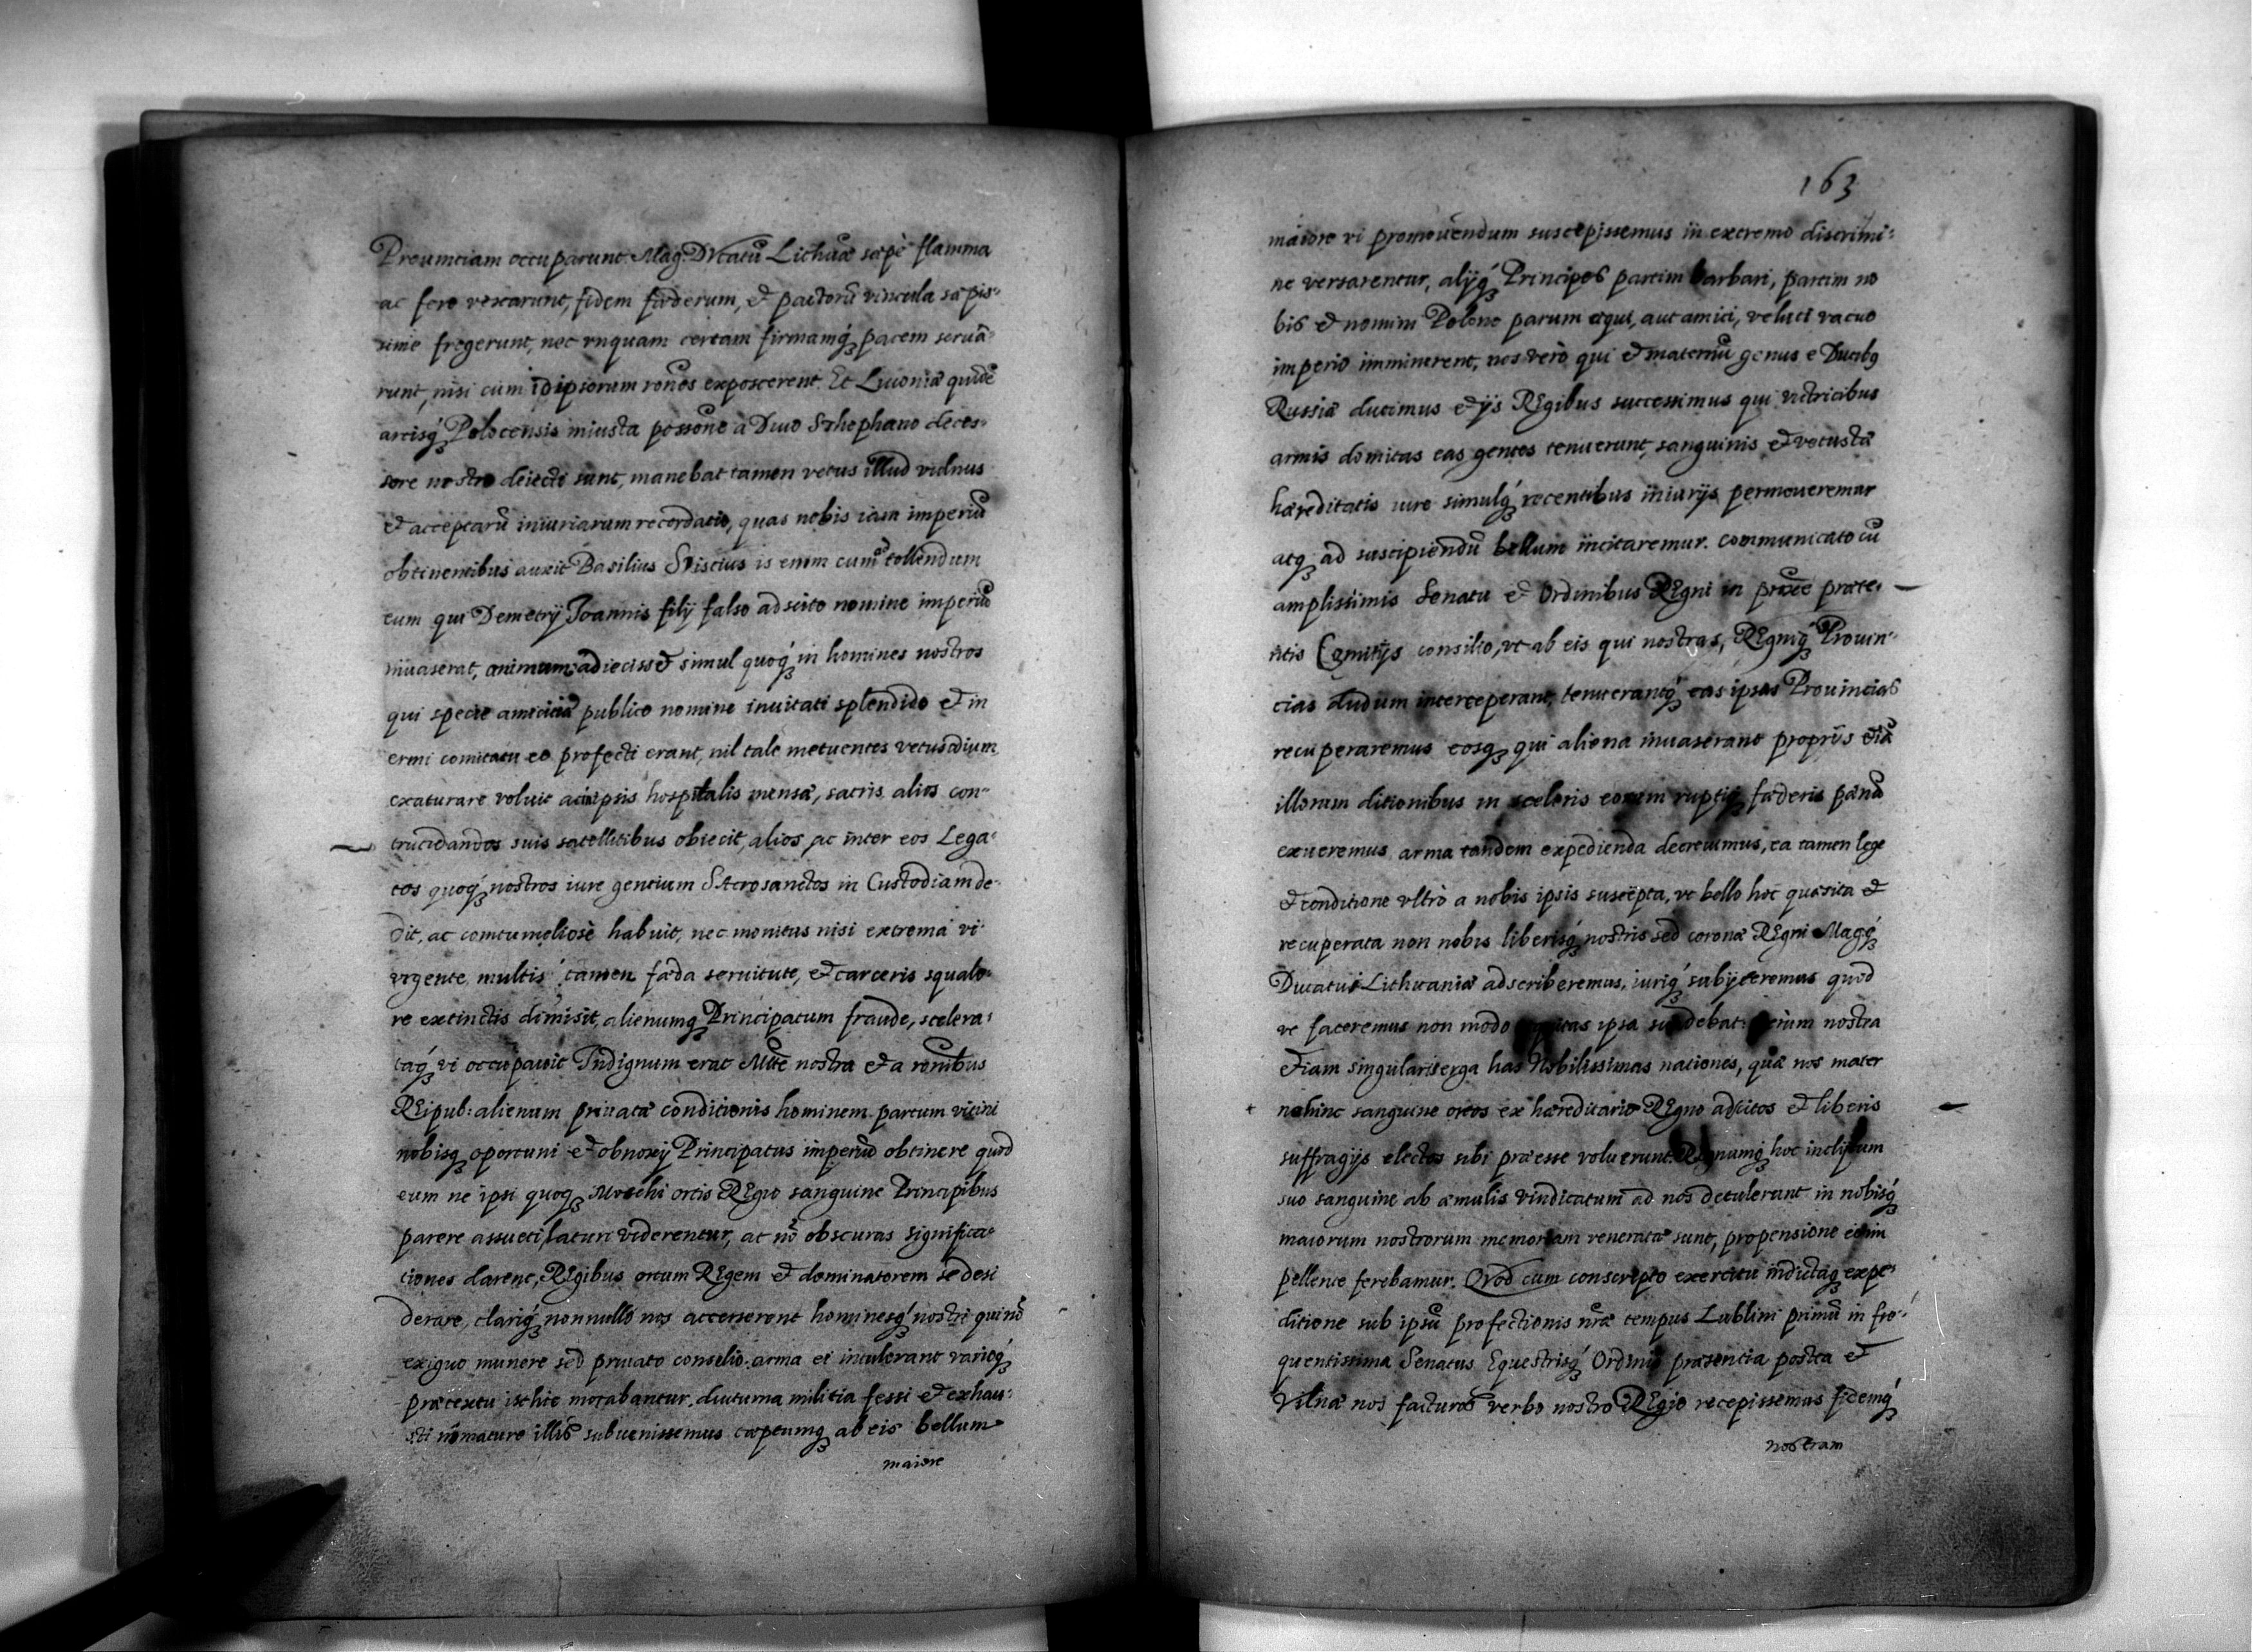 Prouinciam occuparunt Mag: Ducatũ Lithuæ sæpè flamma
ac fero vexarunt, fidem fæderum, et pactorũ vincula sæpis-
sime fregerunt, nec vnquam certam firmamq́ pacem seruã-
runt, nisi cum id ipsorum rões exposcerent. Et Liuoniæ quidẽ
arcisq́ Polocensis iniusta possõne à Diuo Sthephano deces-
sore nostro deiecti sunt, manebat tamen vetus illud vulnus
et acceptarũ iniuriarum recordatio, quas nobis iam imperiũ
obtinentibus auxit Basilius Sviscius is enim cum ad tollendum
eum qui Demetrij Joannis filij falso adscito nomine imperiũ
inuaserat, animum adiecisset simul quoq́ in homines nostros
qui specie amicitiæ publico nomine inuitati splendido et in
ermi comitatu eo profecti erant, nil tale metuentes vetus odium
exaturare voluit ac ipsis hospitalis mensæ, sacris alios con-
trucidandos suis satellitibus obiecit, alios ac inter eos Lega-
tos quoq́ nostros iure gentium Sacrosanctos in Custodiam de-
dit, ac comtumeliosè habuit, nec monitus nisi extrema vi
vrgente multis tamen fæda seruitute, et carceris squalo-
re extinctis dimisit, alienumq Principatum fraude, scelera-
taq́ vi occupauit Indignum erat Mtte nostra et a rõnibus
REipub: alienum priuatæ conditionis hominem partum vicini
nobisq oportuni et obnoxij Principatus imperiũ obtinere quod
eum ne ipsi quoq Moschi ortis REgio sanguine Principibus
parere assueti laturi viderentur, ac nõ obscuras significa-
tiones darent, REgibus ortum REgem et dominatorem se desi
derare, clariq́ nonnulli nos accerserent hominesq́ nostri qui nõ
exiguo munere sed priuato consilio arma ei intulerant varioq́
prætextu isthic morabantur, diuturna militia fessi et exhau-
sti nĩ mature illis subuenissemus cæptumq ab eis bellum
maiore
163
maiore vi promouendum suscepissemus in extremo discrimi-
ne versarentur, alijq́ Principes partim barbari, partim no
bis et nomini Polono parum æqui, aut amici, veluti vacuo
imperio imminerent, nos verò qui et maternũ genus e Ducibq
Russiæ ducimus et ijs REgibus successimus qui victricibus
armis domitas eas gentes tenuerunt, sanguinis et vetustæ
hæreditatis iure simulq́ recentibus iniurijs permoueremur
atq ad suscipiendũ bellum incitaremur. communicato cũ
amplissimis Senatu et Ordinibus REgni in proxe præte-
ritis Comitijs consilio, vt ab eis qui nostras, REgniq́ Prouin-
cias dudum interceperant, tenuerantq́ eas ipsas Prouincias
recuperaremus eosq qui aliena inuaserant proprijs etiã
illorum ditionibus in sceleris eorum ruptiq fæderis pænã
exueremus arma tandem expedienda decreuimus, ea tamen lege
et conditione vltrò a nobis ipsis suscepta, vt bello hoc quæsita et
recuperata non nobis liberisq́ nostris sed coronæ REgni Magq́
Ducatui Lithuaniæ adscriberemus, iuriq́ subijceremus quod
vt faceremus non modo æquitas ipsa suadebat: verum nostra
etiam singularis erga has Nobilissimas nationes, quæ nos mater
nohinc sanguine ortos ex hæreditario REgno adscitos et liberis
suffragijs electos sibi præesse voluerunt. REgnumq́ hoc inclitum
suo sanguine ab æmulis vindicatum ad nos detulerunt in nobisq́
maiorum nostrorum memoriam veneratæ sunt, propensione eo im
pellente ferebamur. Qvod cum conscripto exercitu indictaq expe-
ditione sub ipsũ profectionis nræ tempus Lublini primũ in fre-
quentissima Senatus Equestrisq́ Ordinis præsentia postea et
Vilnæ nos facturos verbo nostro REgio recepissemus fidemq́
nostram